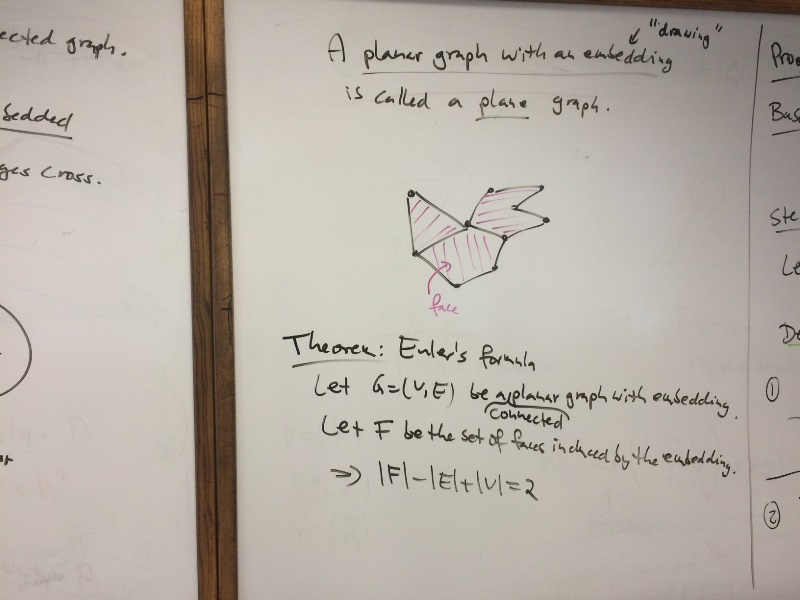 ected graph.
bedded
ges cross.
"drawing"
A planar graph with an embedding
is called a plane graph.
face
Theorem: Euler's formula
Let G=(V,E) be a planar graph with embedding.
connected
Let F be the set of faces induced by the embedding.
⇒ |F|-|E|+|V|=2
Proo
Bas
Ste
Le
De
①
②